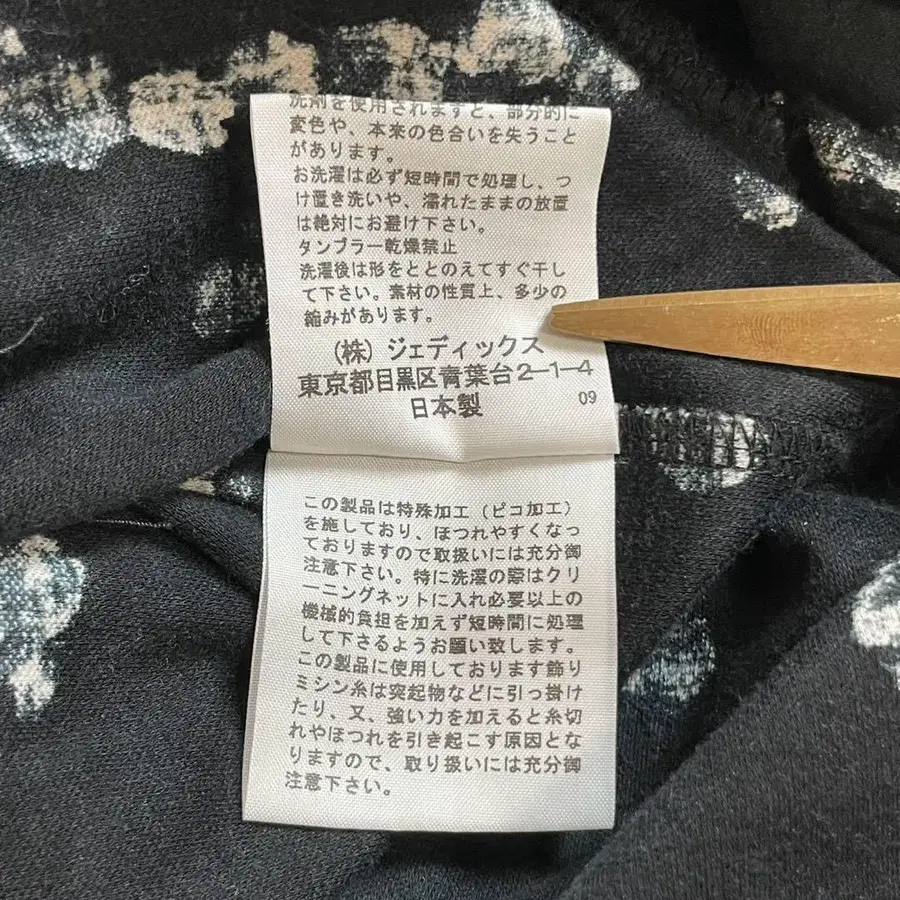 洗剤を使用されますと、部分的に
変色や、本来の色合いを失うこと
があります。
お洗濯は必ず短時間で処理し、つ
け置き洗いや、濡れたままの放置
は絶対にお避け下さい。
タンブラー乾燥禁止
洗濯後は形をととのえてすぐ干し
て下さい。素材の性質上、多少の
縮みがあります。
(株)ジェディックス
東京都目黒区青葉台2-1-4
日本製 09
この製品は特殊加工(ピコ加工)
を施しており、ほつれやすくなっ
ておりますので取扱いには充分御
注意下さい。特に洗濯の際はクリ
ーニングネットに入れ必要以上の
機械的負担を加えず短時間に処理
して下さるようお願い致します。
この製品に使用しております飾り
ミシン糸は突起物などに引っ掛け
たり、又、強い力を加えると糸切
れやほつれを引き起こす原因とな
りますので、取り扱いには充分御
注意下さい。